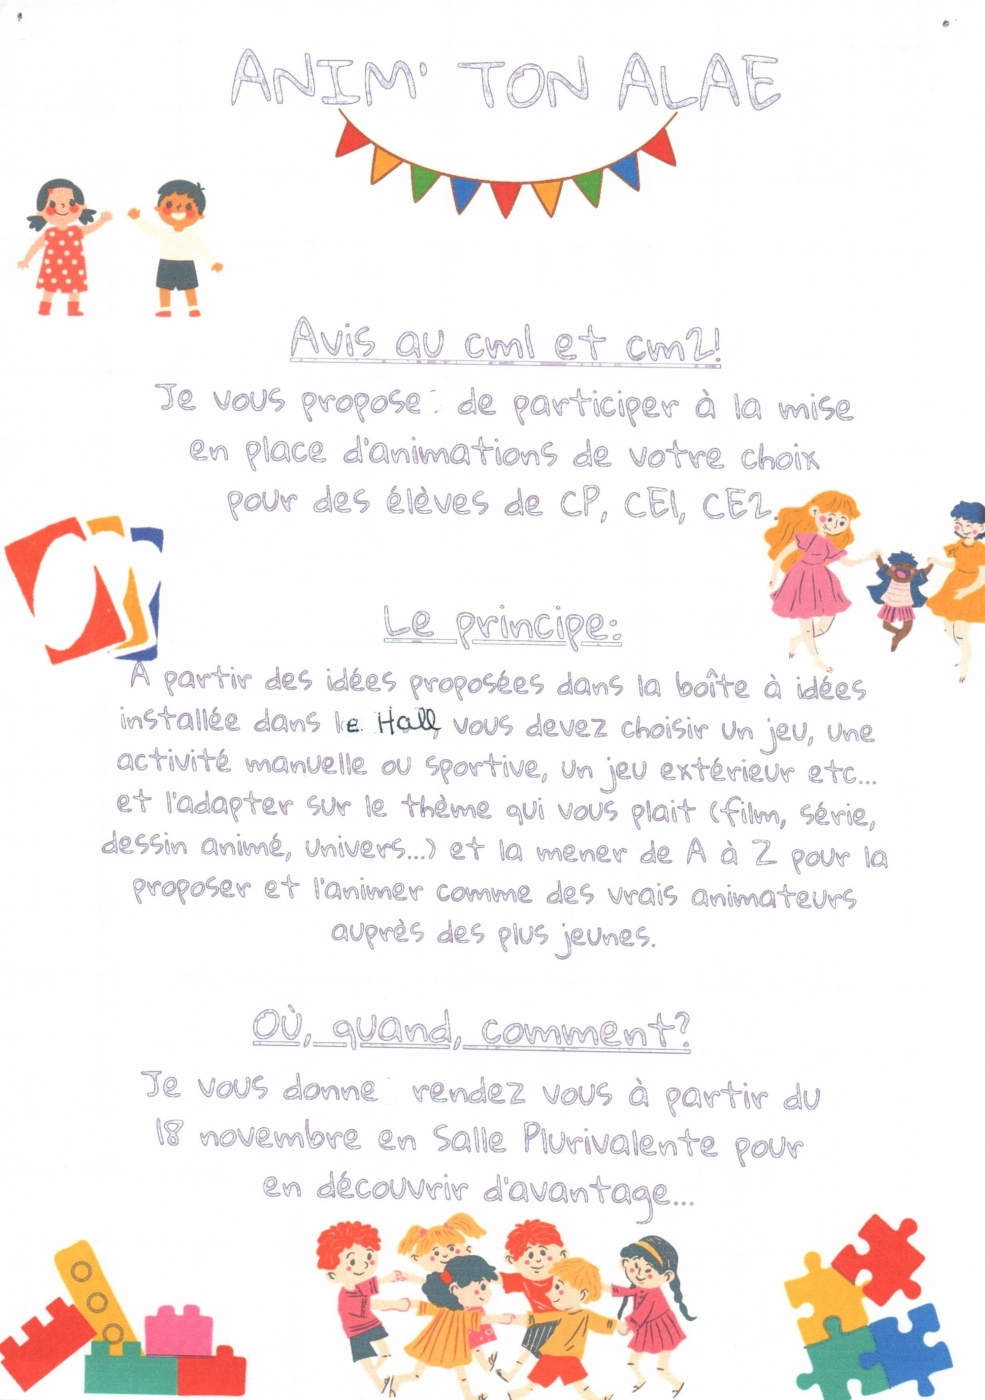 ANIM' TON ALAE
Avis au cm1 et cm2!
Je vous propose : de participer à la mise
en place d'animations de votre choix
pour des élèves de CP, CE1, CE2.
Le principe:
A partir des idées proposées dans la boîte à idées
installée dans le Hall, vous devez choisir un jeu, une
activité manuelle ou sportive, un jeu extérieur etc...
et l'adapter sur le thème qui vous plait (film, série,
dessin animé, univers...) et la mener de A à Z pour la
proposer et l'animer comme des vrais animateurs
auprès des plus jeunes.
Où, quand, comment?
Je vous donne rendez vous à partir du
18 novembre en Salle Plurivalente pour
en découvrir d'avantage...